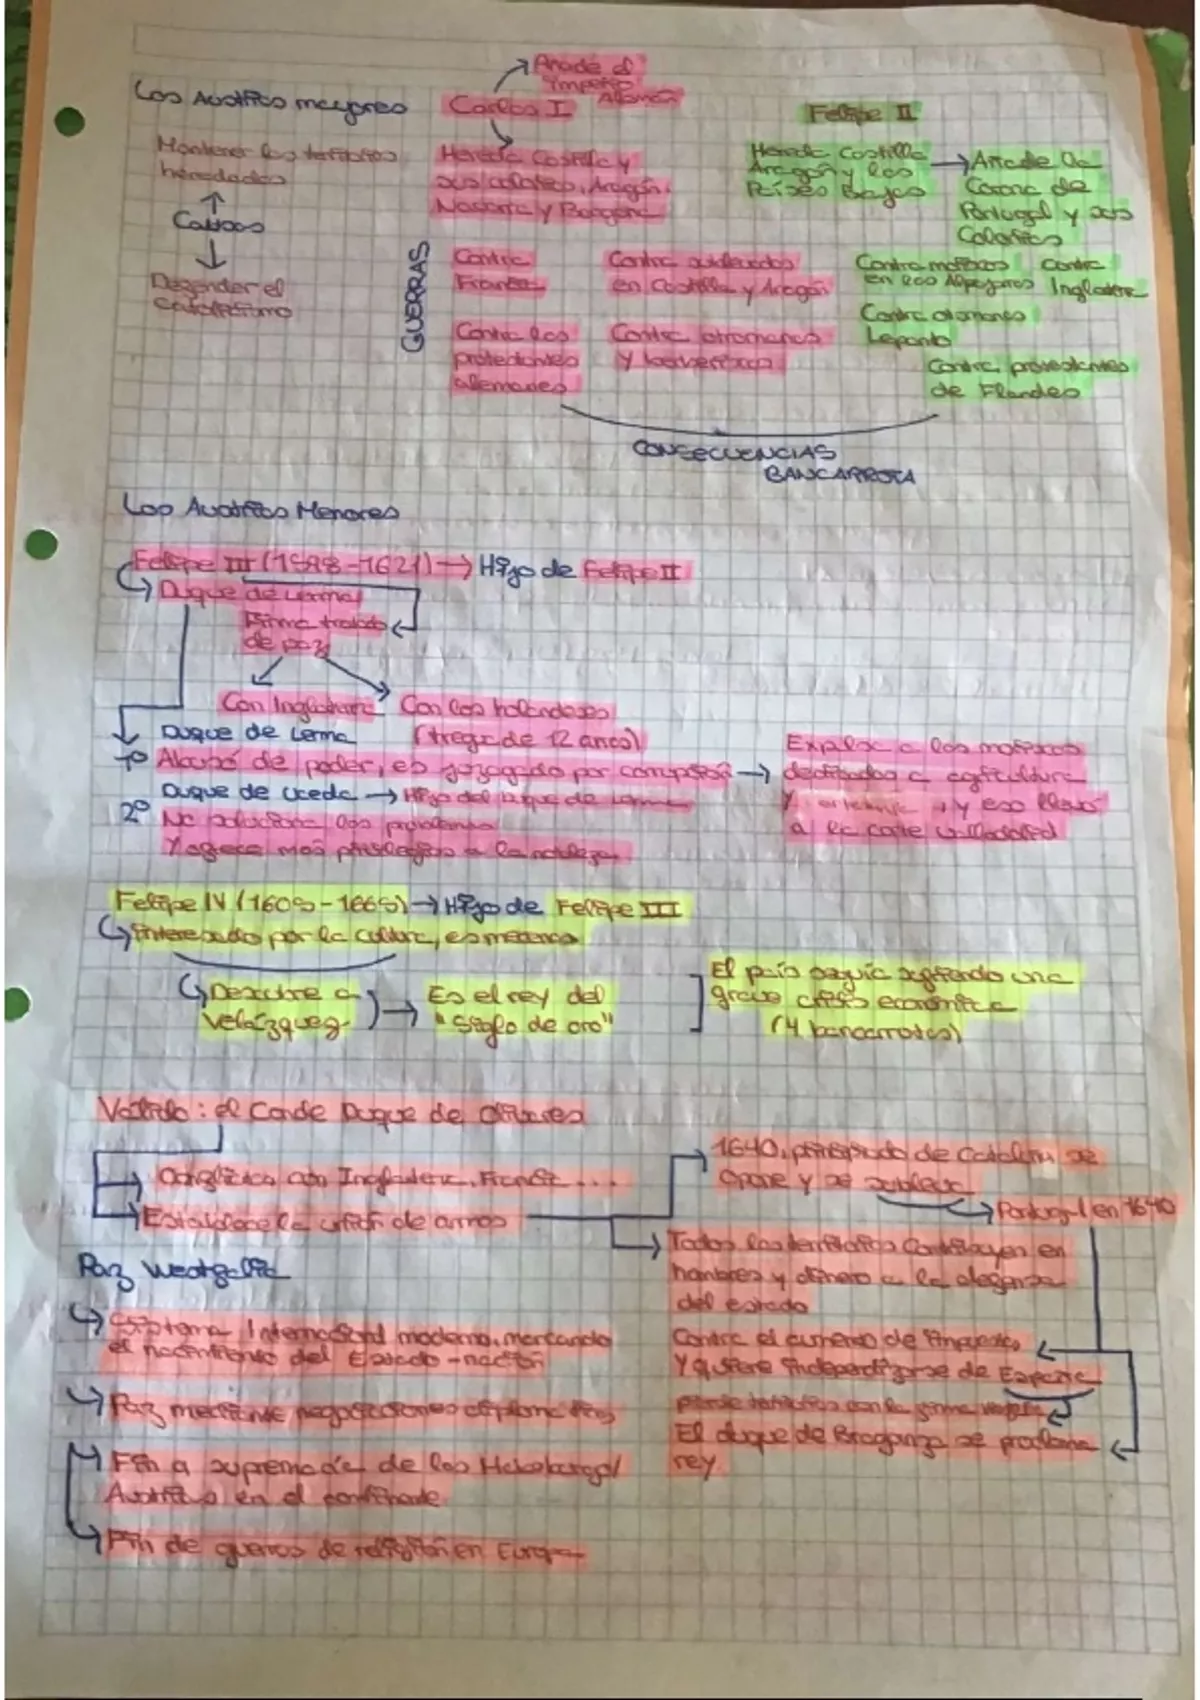 Los Austrias mayores
Mantener los territorios
heredados
Causas
Defender el
catolicismo
Añade el
Imperio
Alemán
Carlos I
Hereda Castilla y
sus colonias, Aragón,
Navarra y Borgoña
Felipe II
Hereda Castilla
Aragón y los
Países Bajos
Añade la
Corona de
Portugal y sus
Colonias
GUERRAS
Contra
Francia
Contra sublevados
en Castilla y Aragón
Contra los
protestantes
alemanes
Contra otomanos
y berberiscos
Contra moriscos
en las Alpujarras
Contra
Inglaterra
Contra otomanos
Lepanto
Contra protestantes
de Flandes
CONSECUENCIAS
BANCARROTA
Los Austrias Menores
Felipe III (1598-1621) → Hijo de Felipe II
Duque de Lerma
Firma tratado
de paz
Con Inglaterra
Con los holandeses
(tregua de 12 años)
Duque de Lerma
1º Abusó de poder, es juzgado por corrupción →
Expulsa a los moriscos
dedicados a agricultura
y artesanía, y eso llevó
a la corte Valladolid
Duque de Uceda → Hijo del Duque de Lerma
2º No soluciona los problemas
Y ofrece mas privilegios a la nobleza
Felipe IV (1605-1665) → Hijo de Felipe III
Interesado por la cultura, es mecenas
Descubre a
Velázquez
Es el rey del
"Siglo de oro"
El país seguía sufriendo una
grave crisis económica
(4 bancarrotas)
Valido: el Conde Duque de Olivares
Conflictos con Inglaterra, Francia...
Establece la unión de armas
1640, principado de Cataluña se
opone y se subleva
Portugal en 1640
Todos los territorios contribuyen en
hombres y dinero a la defensa
del estado
Contra el aumento de impuestos
Y quiere independizarse de España
pierde territorios con la firma
El duque de Braganza se proclama
rey
Paz Westfalia
Sistema Internacional moderno, marcando
el nacimiento del Estado-nación
Paz mediante negociaciones diplomáticas
Fin a supremacía de los Habsburgo/
Austrias en el continente
Fin de guerras de religión en Europa